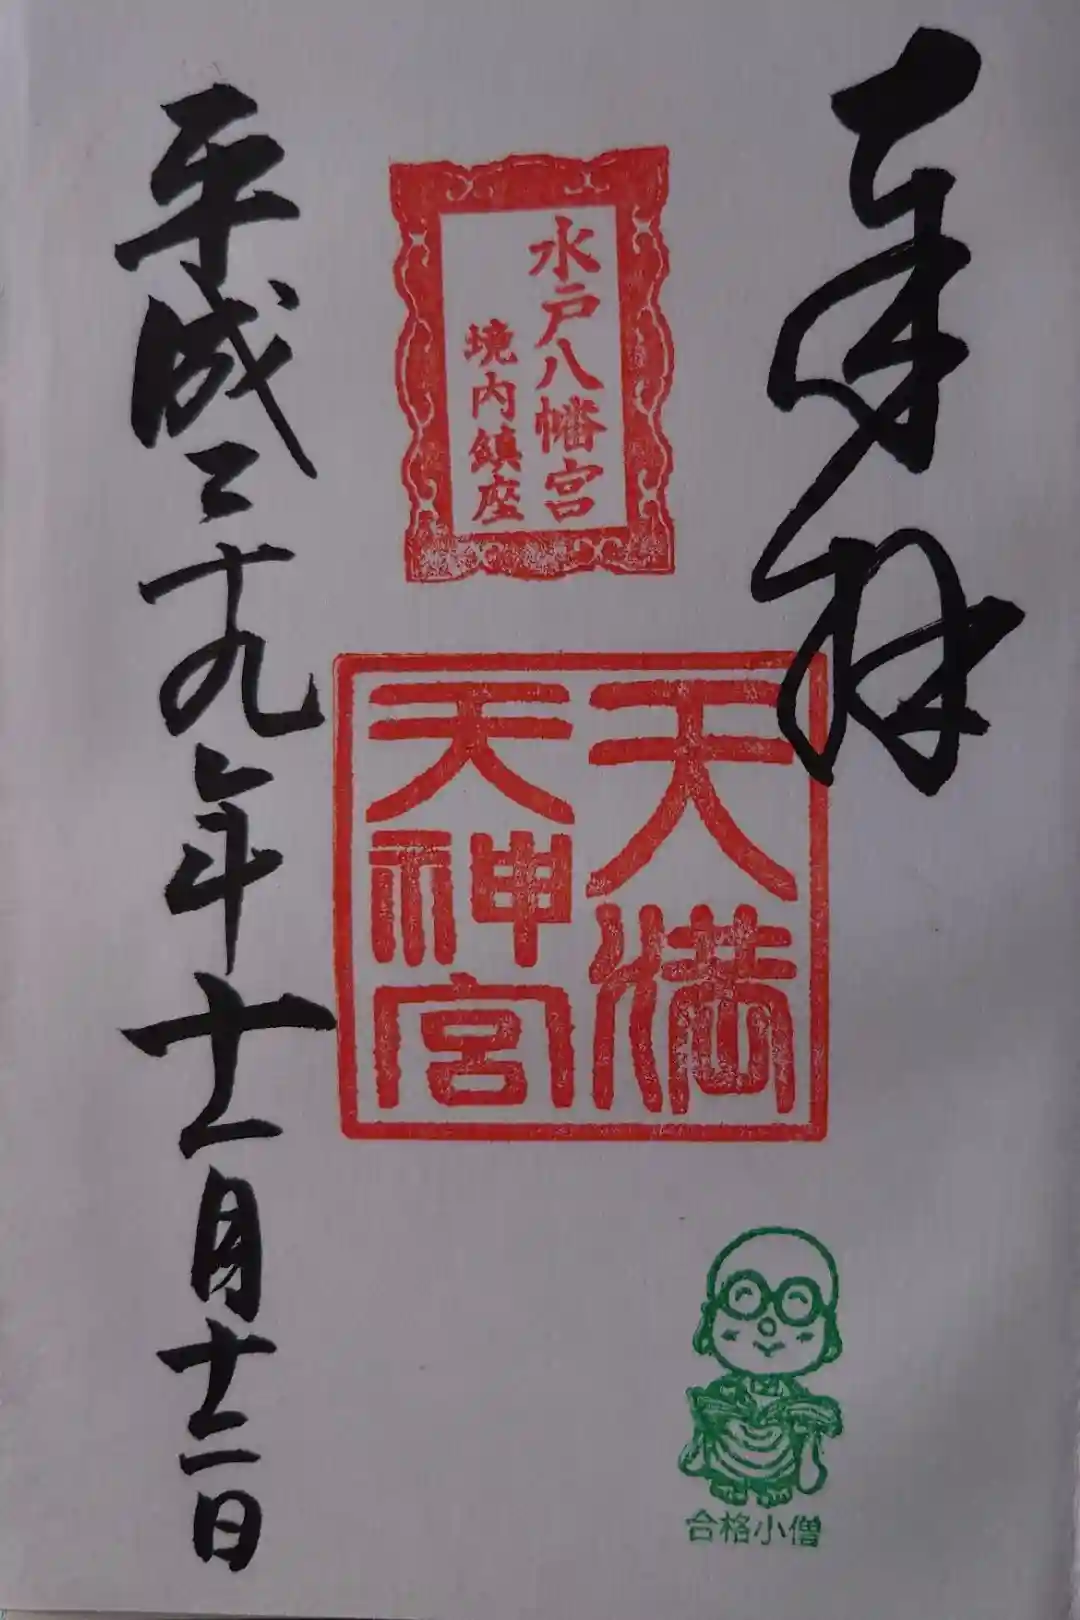 奉拝
水戸八幡宮
境内鎮座
天満
天神宮
平成二十九年十一月十二日
合格小僧